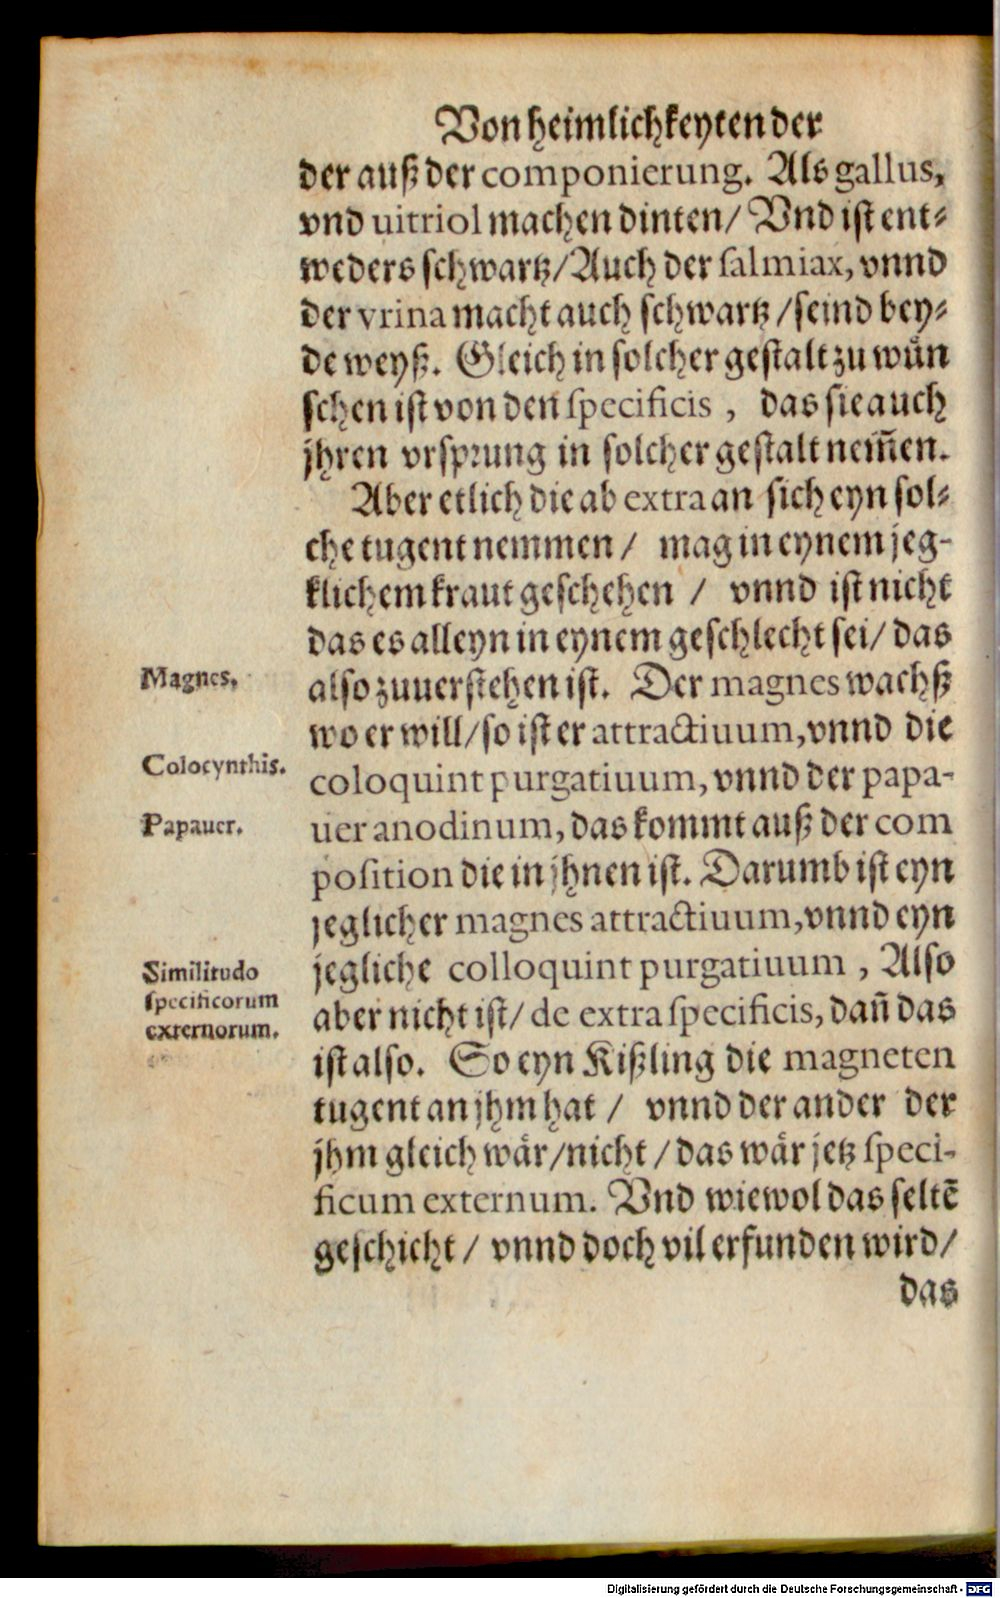 Von heimlichkeyten der
der auß der componierung. Als gallus,
vnd uitriol machen dinten/ Vnd ist ent⸗
weders schwartz/Auch der salmiax, vnnd
der vrina macht auch schwartz/seind bey⸗
de weyß. Gleich in solcher gestalt zu wün
schen ist von den specificis , das sie auch
jhren vrsprung in solcher gestalt nem̃en.
Aber etlich die ab extra an sich eyn sol⸗
che tugent nemmen/ mag in eynem jeg-
klichem kraut geschehen / vnnd ist nicht
das es alleyn in eynem geschlecht sei/ das
also zuuerstehen ist. Der magnes wachß
wo er will/so ist er attractiuum, vnnd die
coloquint purgatiuum, vnnd der papa-
uer anodinum, das kommt auß der com
position die in jhnen ist. Darumb ist eyn
jeglicher magnes attractiuum, vnnd eyn
jegliche colloquint purgatiuum , Also
aber nicht ist/ de extra specificis, dañ das
ist also. So eyn Kißling die magneten
tugent an jhm hat / vnnd der ander der
jhm gleich wår/nicht/das wår jetz speci-
ficum externum. Vnd wiewol das seltē
geschicht/ vnnd doch vil erfunden wird/
das
Magnes.
Colocynthis.
Papauer.
Similitudo
specificorum
externorum.
Digitalisierung gefördert durch die Deutsche Forschungsgemeinschaft - DFG